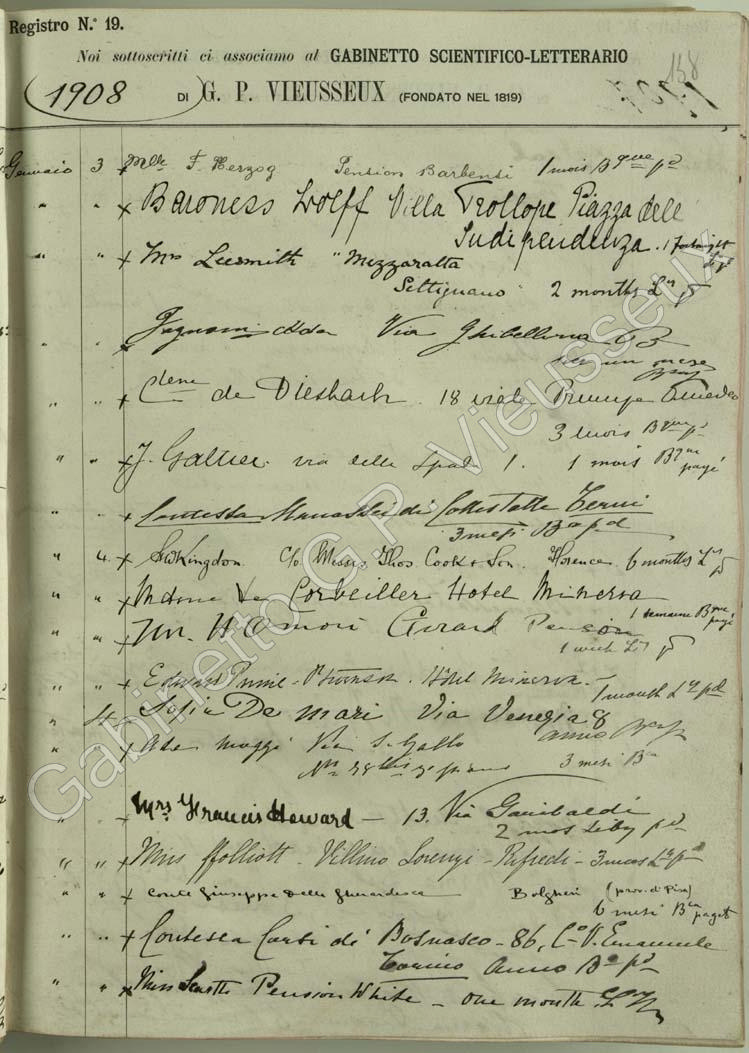 Registro N.º 19.
Noi sottoscritti ci associamo al GABINETTO SCIENTIFICO-LETTERARIO
158
1908
DI G. P. VIEUSSEUX (FONDATO NEL 1819)
Gennaio 3 x Mlle F. Herzog Pension Barbensi 1 mois Bque pd
" " x Baroness Wolff Villa Trollope Piazza dele
Indipendenza. 1 fortnight
" " x Mrs Leesmith "Mezzaratta
Settignano" 2 months Ly pd
" Ada Via Ghibellina 63
per un mese
" " x Ctesse de Diesbach 18 viale Principe Amedeo
3 mois Bque pd
" " x J. Galtier via delle Spada 1. 1 mois Bque
payé
" x Contessa Manassei di Collestatte Terni
3 mesi Bca pd
" 4 x Kingdon c/o Messrs Thos. Cook & Son. Florence 6 months Ly
" " x Mdme Le Corbeiller Hotel Minerva
1 semaine Bque
payé
" " x H Omori Girard Pension
1 week Ly
" " x Edward Hôtel Minerva
1 month Ly pd
" 4 x Sofia De Mari Via Venezia 8
anno
" x Ada Maggi Via S. Gallo
No 3 mesi Bca
" " x Mrs Francis Howard — 13. Via Garibaldi
2 mos Liby pd
" " x Miss ffolliott - Villino Lorenzi - Rifredi - 3 mos Ly pd
" " x Conte Giuseppe della Gherardesca Bolgheri (prov. di Pisa)
6 mesi Bca pagato
" " x Contessa Corbi di Bosnasco - 86, Cso V. Emanuele
Torino anno Bca pd
" " x Miss Pension White - one month Ly
Gabinetto G.P. Vieusseux